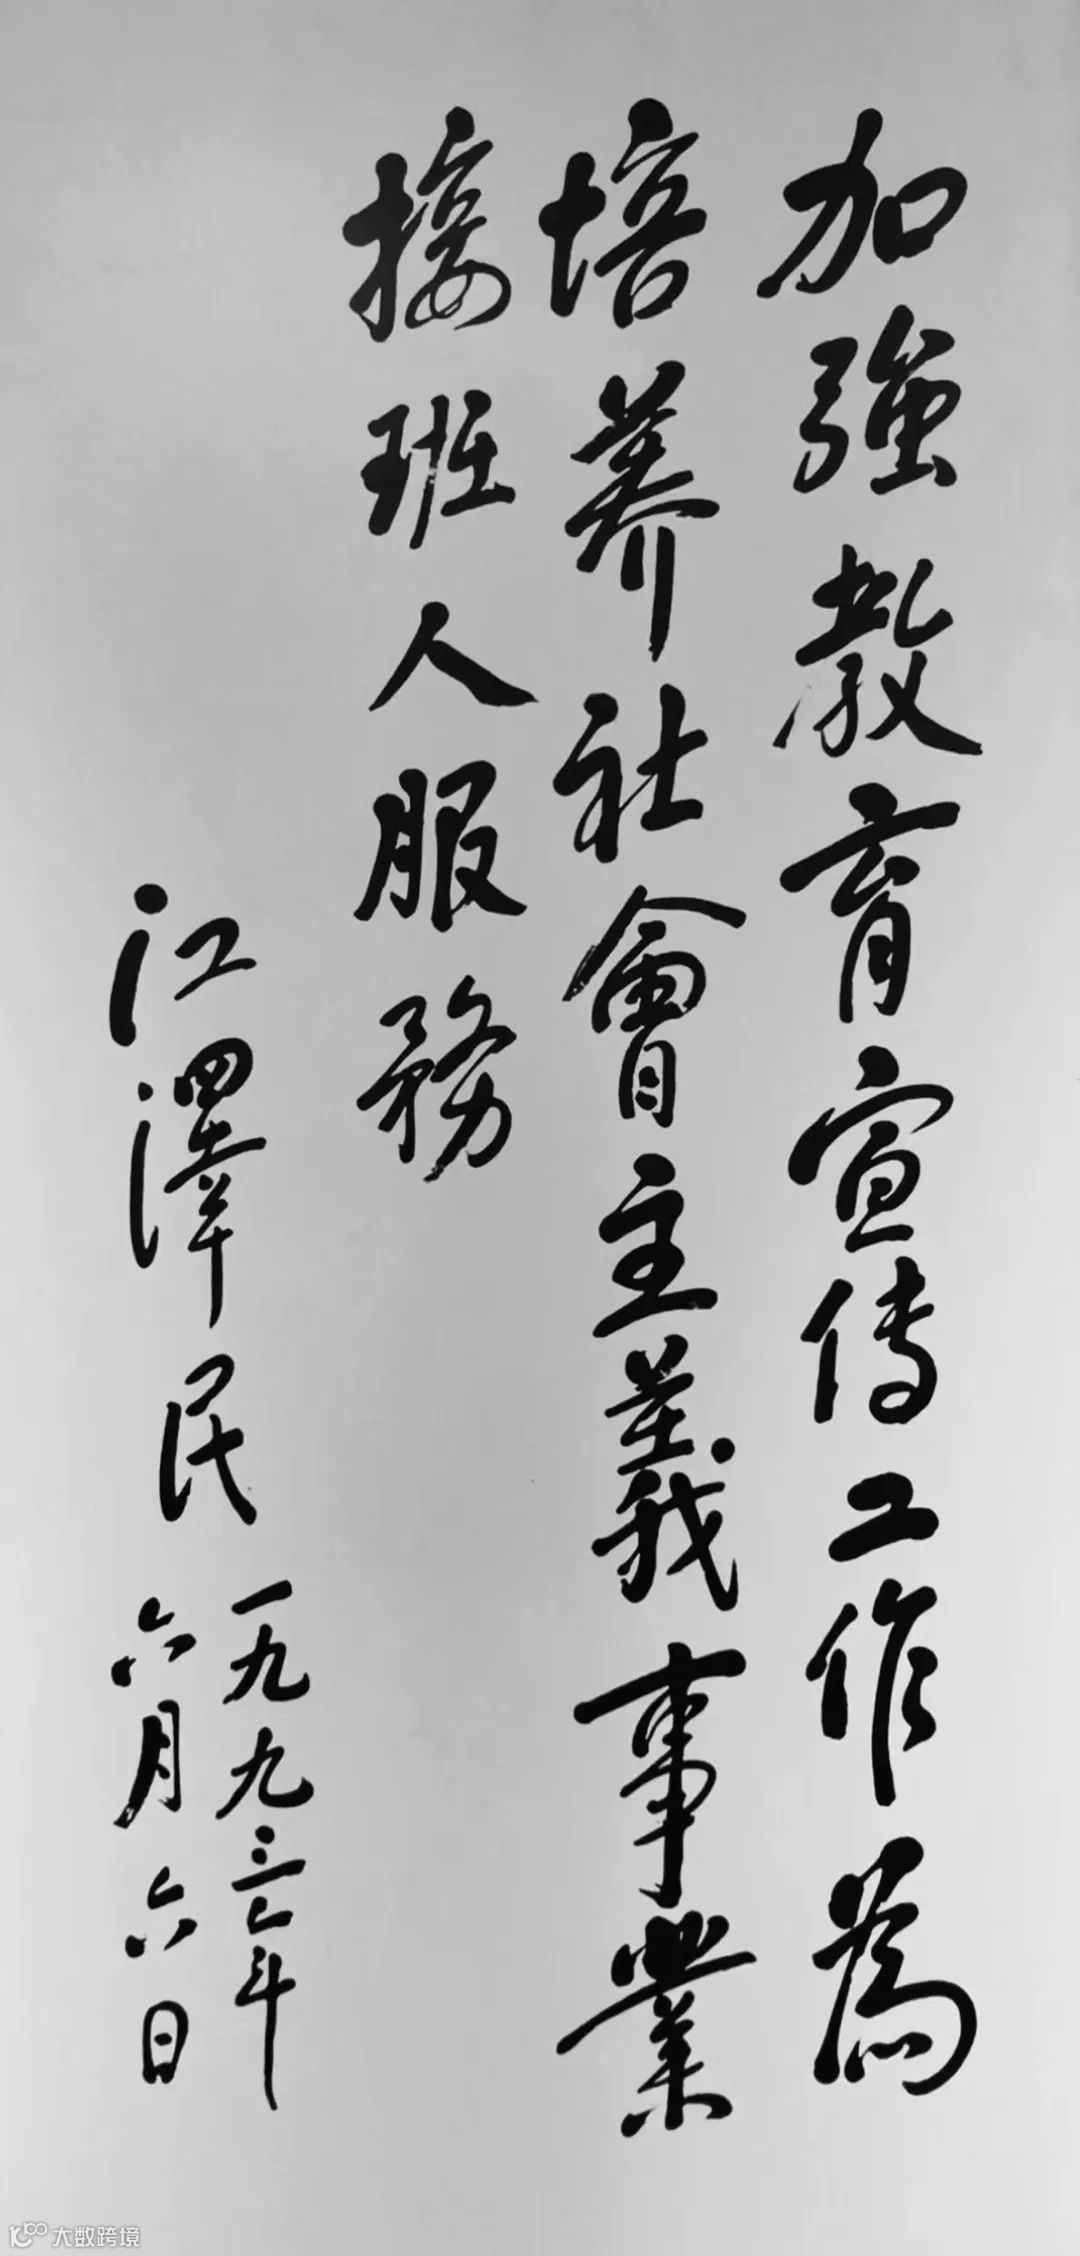 加強教育宣传工作為
培养社會主義事業
接班人服務
江澤民
一九九三年
六月六日
大数跨境